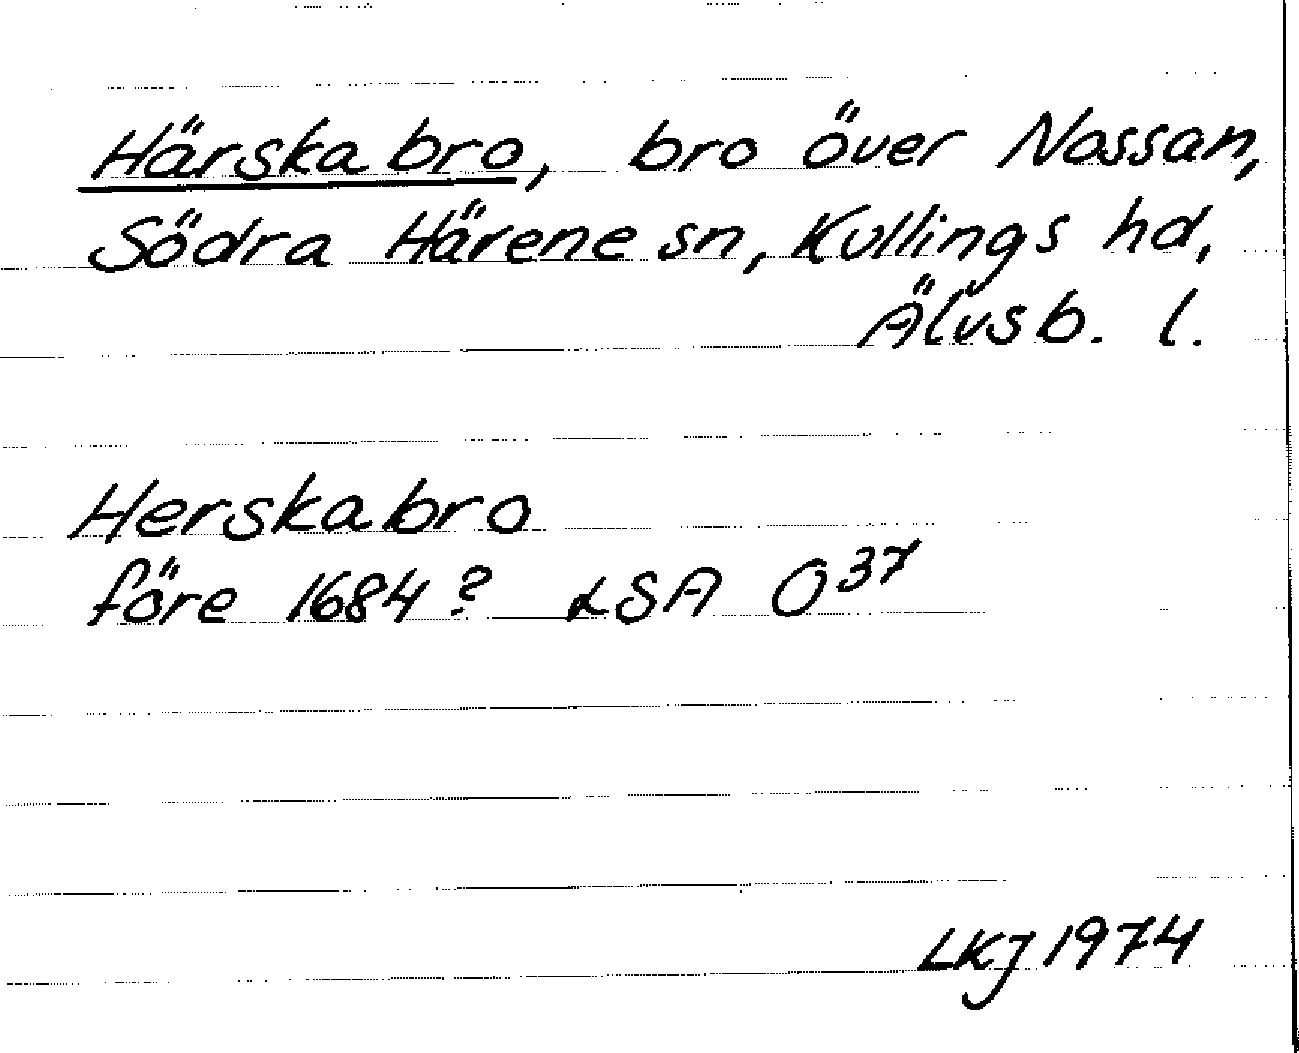 Härskabro, bro över Nossan,
Södra Härene sn, Kullings hd,
Älvsb. l.
Herskabro
före 1684? LSA O37
LKJ 1974